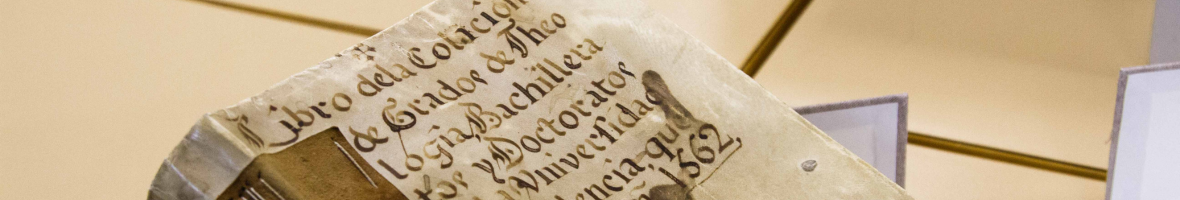 Libro dela Colación
de Grados de Theo
logía Bachillera
tos y Doctoratos
Vniversidad
encia que
1562,